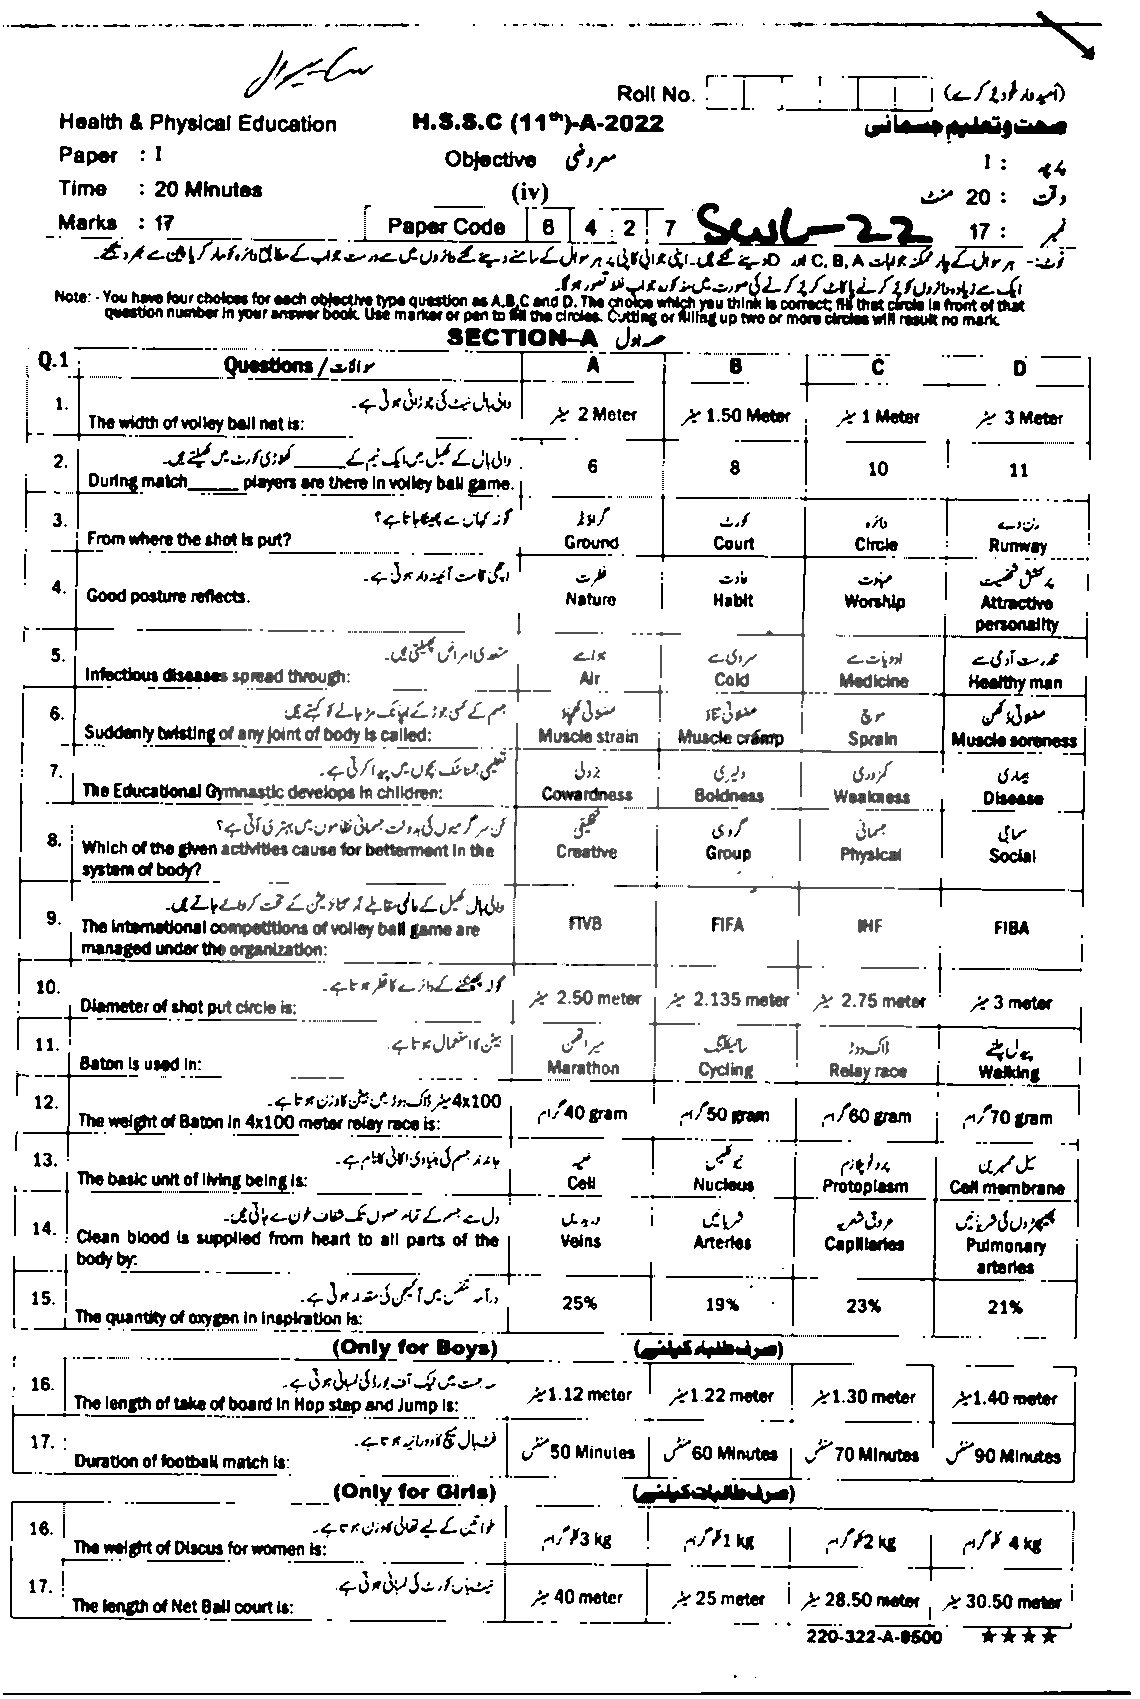 Roll No. (امیدوار خود پُر کرے)
Health & Physical Education H.S.S.C (11th)-A-2022 صحت و تعلیم جسمانی
Paper : I Objective معروضی I : پرچہ
Time : 20 Minutes (iv) وقت : 20 منٹ
Marks : 17 Paper Code 6 4 2 7 17 : نمبر
Note: - You have four choices for each objective type question as A,B,C and D. The choice which you think is correct; fill that circle in front of that
question number in your answer book. Use marker or pen to fill the circles. Cutting or filling up two or more circles will result no mark.
SECTION-A حصہ اول
Q.1 Questions / سوالات A B C D
1. والی بال نیٹ کی چوڑائی ہوتی ہے۔
The width of volley ball net is: 2 Meter میٹر 1.50 Meter میٹر 1 Meter میٹر 3 Meter میٹر
2. والی بال کے کھیل میں ایک ٹیم کے _____ کھلاڑی کورٹ میں کھیلتے ہیں۔
During match_____ players are there in volley ball game. 6 8 10 11
3. گولہ کہاں سے پھینکا جاتا ہے؟ گراؤنڈ کورٹ دائرہ رن وے
From where the shot is put? Ground Court Circle Runway
4. اچھی قامت آئینہ دار ہوتی ہے۔ فطرت عادت عبادت پرکشش شخصیت
Good posture reflects. Nature Habit Worship Attractive
personality
5. متعدی امراض پھیلتی ہیں۔ ہوا سے سردی سے ادویات سے تندرست آدمی سے
Infectious diseases spread through: Air Cold Medicine Healthy man
6. جسم کے کسی جوڑ کے اچانک مڑ جانے کو کہتے ہیں۔ موچ
Suddenly twisting of any joint of body is called: Muscle strain Muscle cramp Sprain Muscle soreness
7. تعلیمی جمناسٹک بچوں میں پیدا کرتی ہے۔ بزدلی دلیری کمزوری بیماری
The Educational Gymnastic develops in children: Cowardness Boldness Weakness Disease
8. کن سرگرمیوں کی بدولت جسمانی نظاموں میں بہتری آتی ہے؟ تخلیقی گروہی جسمانی سماجی
Which of the given activities cause for betterment in the Creative Group Physical Social
system of body?
9.
The international competitions of volley ball game are FIVB FIFA IHF FIBA
managed under the organization:
10. گولہ پھینکنے کے دائرے کا قطر ہوتا ہے۔
Diameter of shot put circle is: 2.50 meter میٹر 2.135 meter میٹر 2.75 meter میٹر 3 meter میٹر
11. بیٹن کا استعمال ہوتا ہے۔ میراتھن سائیکلنگ ڈاک دوڑ پیدل چلنے
Baton is used in: Marathon Cycling Relay race Walking
12. 4x100 میٹر ڈاک دوڑ میں بیٹن کا وزن ہوتا ہے۔
The weight of Baton in 4x100 meter relay race is: 40 gram گرام 50 gram گرام 60 gram گرام 70 gram گرام
13. جاندار جسم کی بنیادی اکائی کا نام ہے۔ خلیہ نیوکلیس پروٹوپلازم سیل ممبرین
The basic unit of living being is: Cell Nucleus Protoplasm Cell membrane
14. دل سے جسم کے تمام حصوں تک شفاف خون لے جاتی ہیں۔ وریدیں شریانیں عروق شعریہ پھیپھڑوں کی شریانیں
Clean blood is supplied from heart to all parts of the Veins Arteries Capillaries Pulmonary
body by: arteries
15. درآمد تنفس میں آکسیجن کی مقدار ہوتی ہے۔
The quantity of oxygen in inspiration is: 25% 19% 23% 21%
(Only for Boys) (صرف طلباء کیلئے)
16.
The length of take of board in Hop step and Jump is: 1.12 meter میٹر 1.22 meter میٹر 1.30 meter میٹر 1.40 meter میٹر
17. فٹ بال میچ کا دورانیہ ہوتا ہے۔
Duration of football match is: 50 Minutes منٹس 60 Minutes منٹس 70 Minutes منٹس 90 Minutes منٹس
(Only for Girls) (صرف طالبات کیلئے)
16. خواتین کے لیے تھالی کا وزن ہوتا ہے۔
The weight of Discus for women is: 3 kg کلوگرام 1 kg کلوگرام 2 kg کلوگرام 4 kg کلوگرام
17. نیٹ بال کورٹ کی لمبائی ہوتی ہے۔
The length of Net Ball court is: 40 meter میٹر 25 meter میٹر 28.50 meter میٹر 30.50 meter میٹر
220-322-A-8500 ★★★★